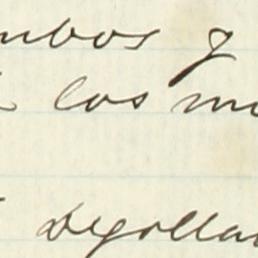 mbos y
los m
degolla